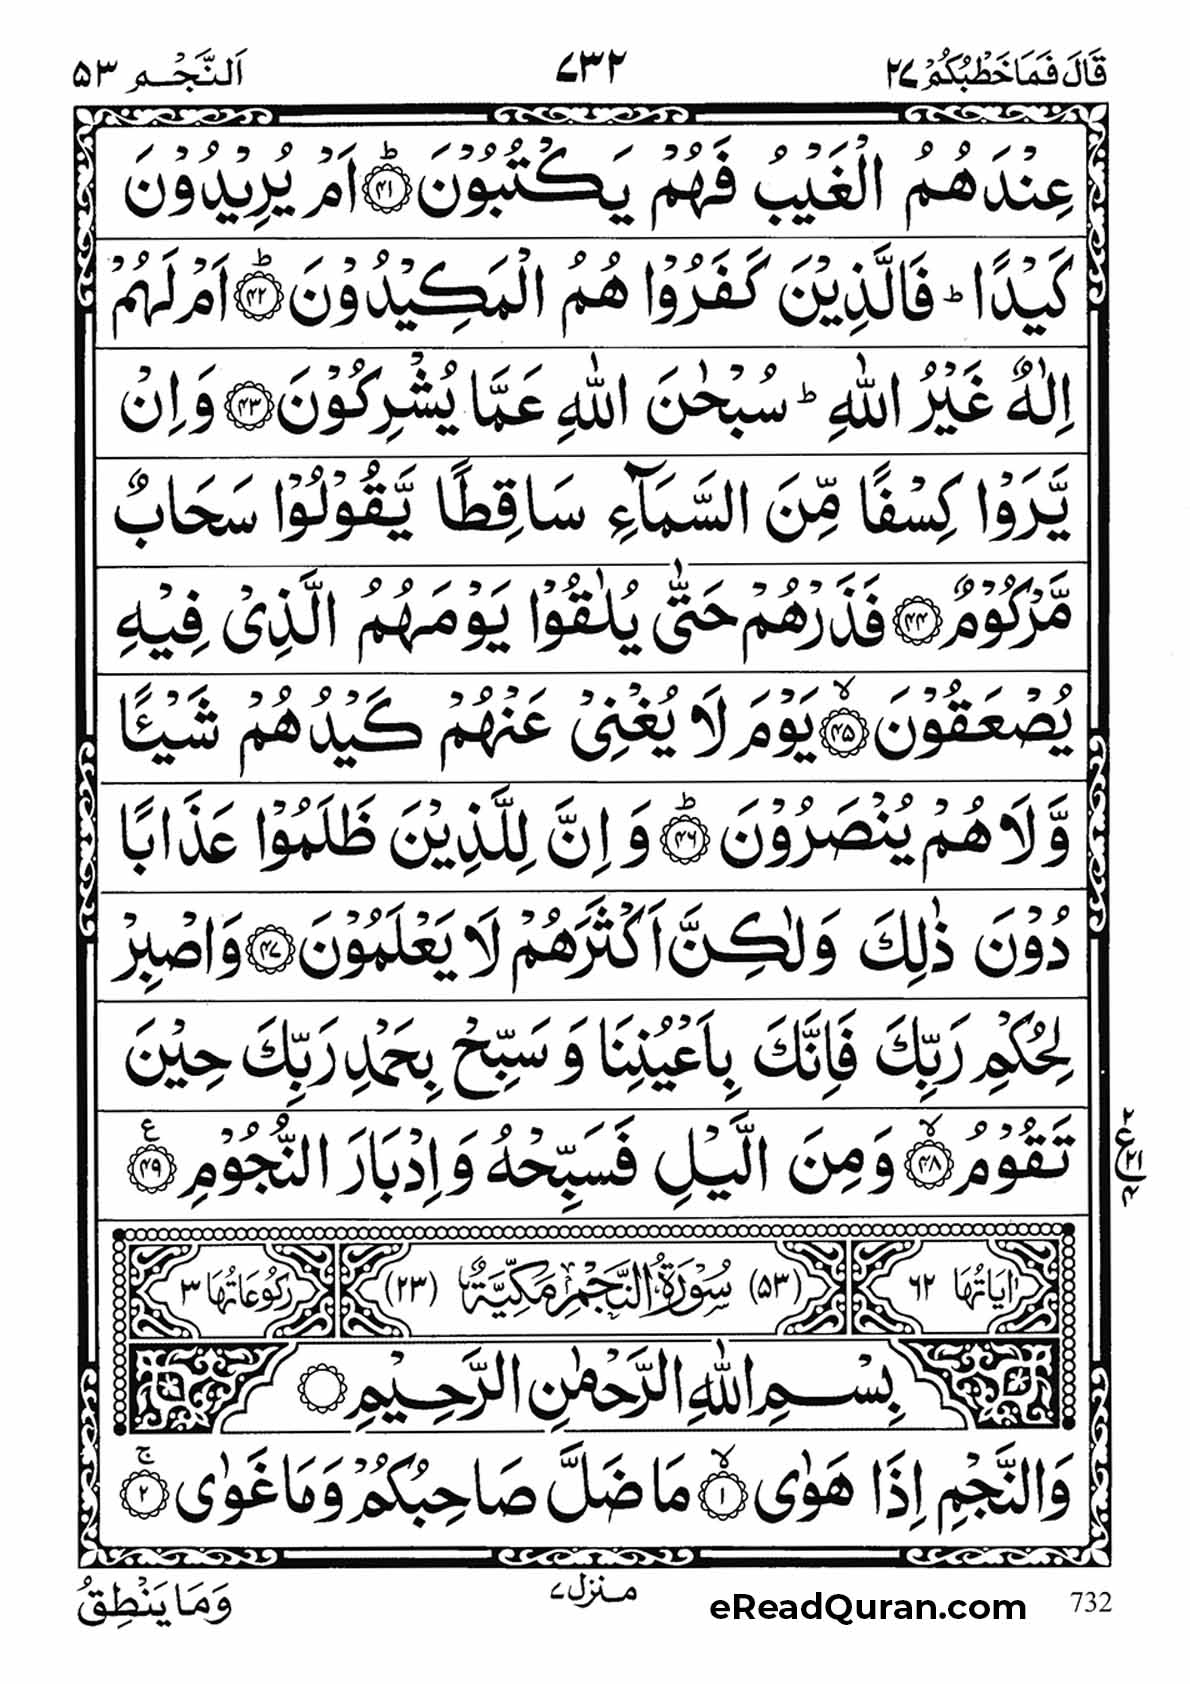 قَالَ فَمَا خَطْبُكُمْ ۲۷ ۷۳۲ اَلنَّجْم ۵۳
عِنْدَهُمُ الْغَيْبُ فَهُمْ يَكْتُبُوْنَ ؕ۴۱ اَمْ يُرِيْدُوْنَ
كَيْدًا ؕ فَالَّذِيْنَ كَفَرُوْا هُمُ الْمَكِيْدُوْنَ ؕ۴۲ اَمْ لَهُمْ
اِلٰهٌ غَيْرُ اللّٰهِ ؕ سُبْحٰنَ اللّٰهِ عَمَّا يُشْرِكُوْنَ ۴۳ وَاِنْ
يَّرَوْا كِسْفًا مِّنَ السَّمَآءِ سَاقِطًا يَّقُوْلُوْا سَحَابٌ
مَّرْكُوْمٌ ۴۴ فَذَرْهُمْ حَتّٰى يُلٰقُوْا يَوْمَهُمُ الَّذِىْ فِيْهِ
يُصْعَقُوْنَ ۙ۴۵ يَوْمَ لَا يُغْنِىْ عَنْهُمْ كَيْدُهُمْ شَيْـًٔا
وَّلَا هُمْ يُنْصَرُوْنَ ؕ۴۶ وَاِنَّ لِلَّذِيْنَ ظَلَمُوْا عَذَابًا
دُوْنَ ذٰلِكَ وَلٰكِنَّ اَكْثَرَهُمْ لَا يَعْلَمُوْنَ ۴۷ وَاصْبِرْ
لِحُكْمِ رَبِّكَ فَاِنَّكَ بِاَعْيُنِنَا وَسَبِّحْ بِحَمْدِ رَبِّكَ حِيْنَ
تَقُوْمُ ۙ۴۸ وَمِنَ الَّيْلِ فَسَبِّحْهُ وَاِدْبَارَ النُّجُوْمِ ۴۹ ع
۲ ع ۲۱ ۴
اٰيَاتُهَا ۶۲ (۵۳) سُوْرَةُ النَّجْمِ مَكِّيَّةٌ (۲۳) رُكُوْعَاتُهَا ۳
بِسْمِ اللّٰهِ الرَّحْمٰنِ الرَّحِيْمِ
وَالنَّجْمِ اِذَا هَوٰى ۙ۱ مَا ضَلَّ صَاحِبُكُمْ وَمَا غَوٰى ۚ۲
وَمَا يَنْطِقُ منزل ۷ eReadQuran.com 732